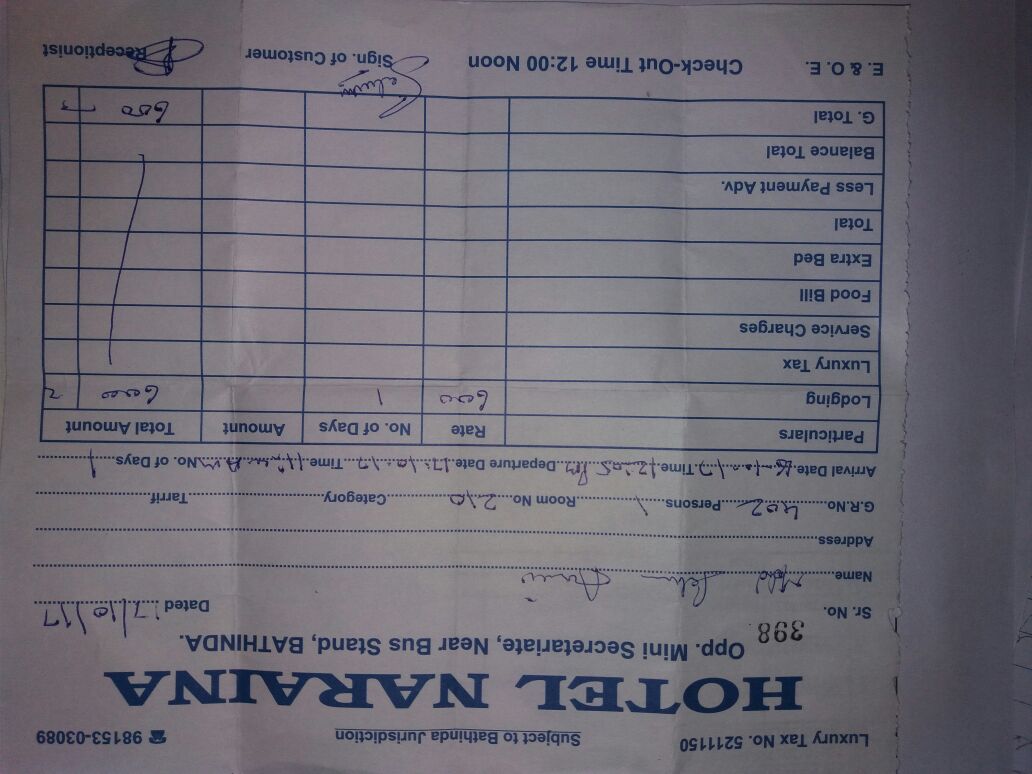 Luxury Tax No. 5211150 Subject to Bathinda Jurisdiction ☎ 98153-03089
HOTEL NARAINA
Opp. Mini Secretariate, Near Bus Stand, BATHINDA.
Sr. No. 398 Dated 17/10/17
Name Mohd
Address
G.R.No. 402 Persons 1 Room No. 210 Category Tarrif
Arrival Date 16-10-17 Time 12:05 PM Departure Date 17-10-17 Time AM No. of Days 1
Particulars Rate No. of Days Amount Total Amount
Lodging 600 1 600
Luxury Tax
Service Charges
Food Bill
Extra Bed
Total
Less Payment Adv.
Balance Total
G. Total 600
E. & O. E. Check-Out Time 12:00 Noon Sign. of Customer Receptionist